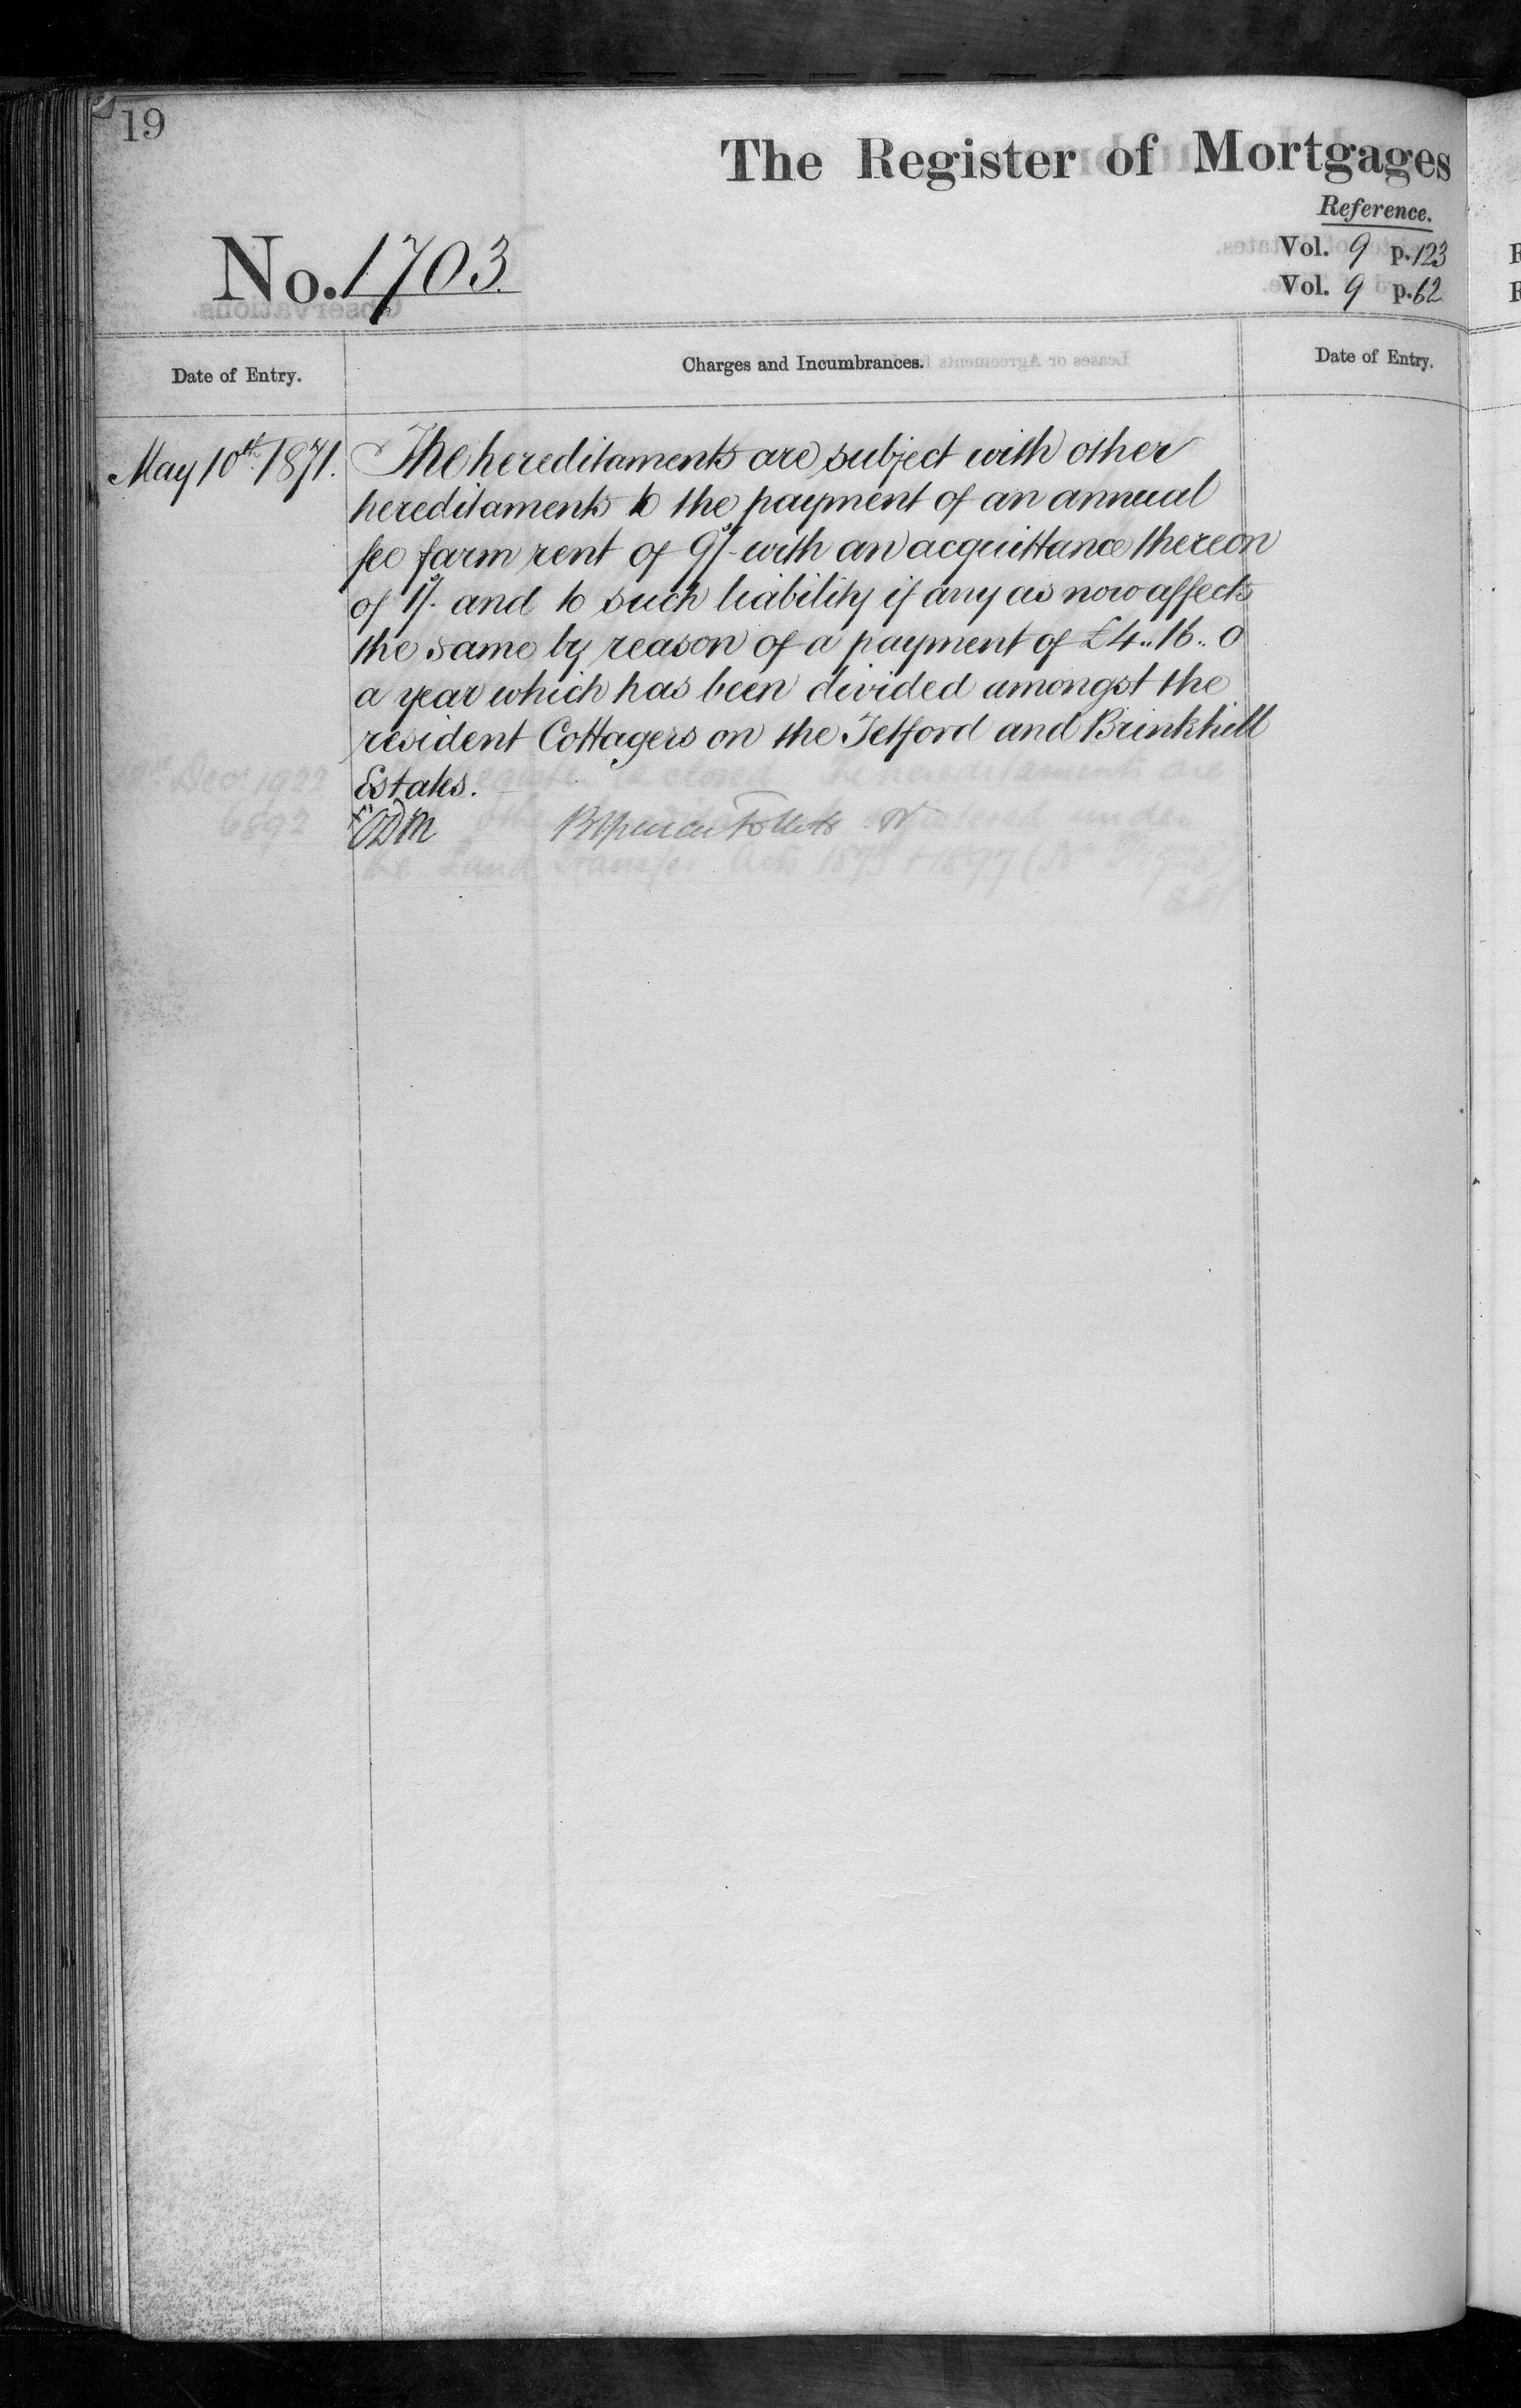 19
The Register of Mortgages
Reference.
No. 1703.
Vol. 9 p. 123
Vol. 9 p. 62
Date of Entry.
Charges and Incumbrances.
Date of Entry.
May 10th 1871.
The hereditaments are subject with other
hereditaments to the payment of an annual
fee farm rent of 9s/- with an acquittance thereon
of 1s/- and to such liability if any as now affects
the same by reason of a payment of £4..16..0
a year which has been divided amongst the
resident Cottagers on the Tetford and Brinkhill
Estates.
Decr. 1922
closed The hereditaments are
6892
registered under
the Land Transfer Acts 1875 & 1897